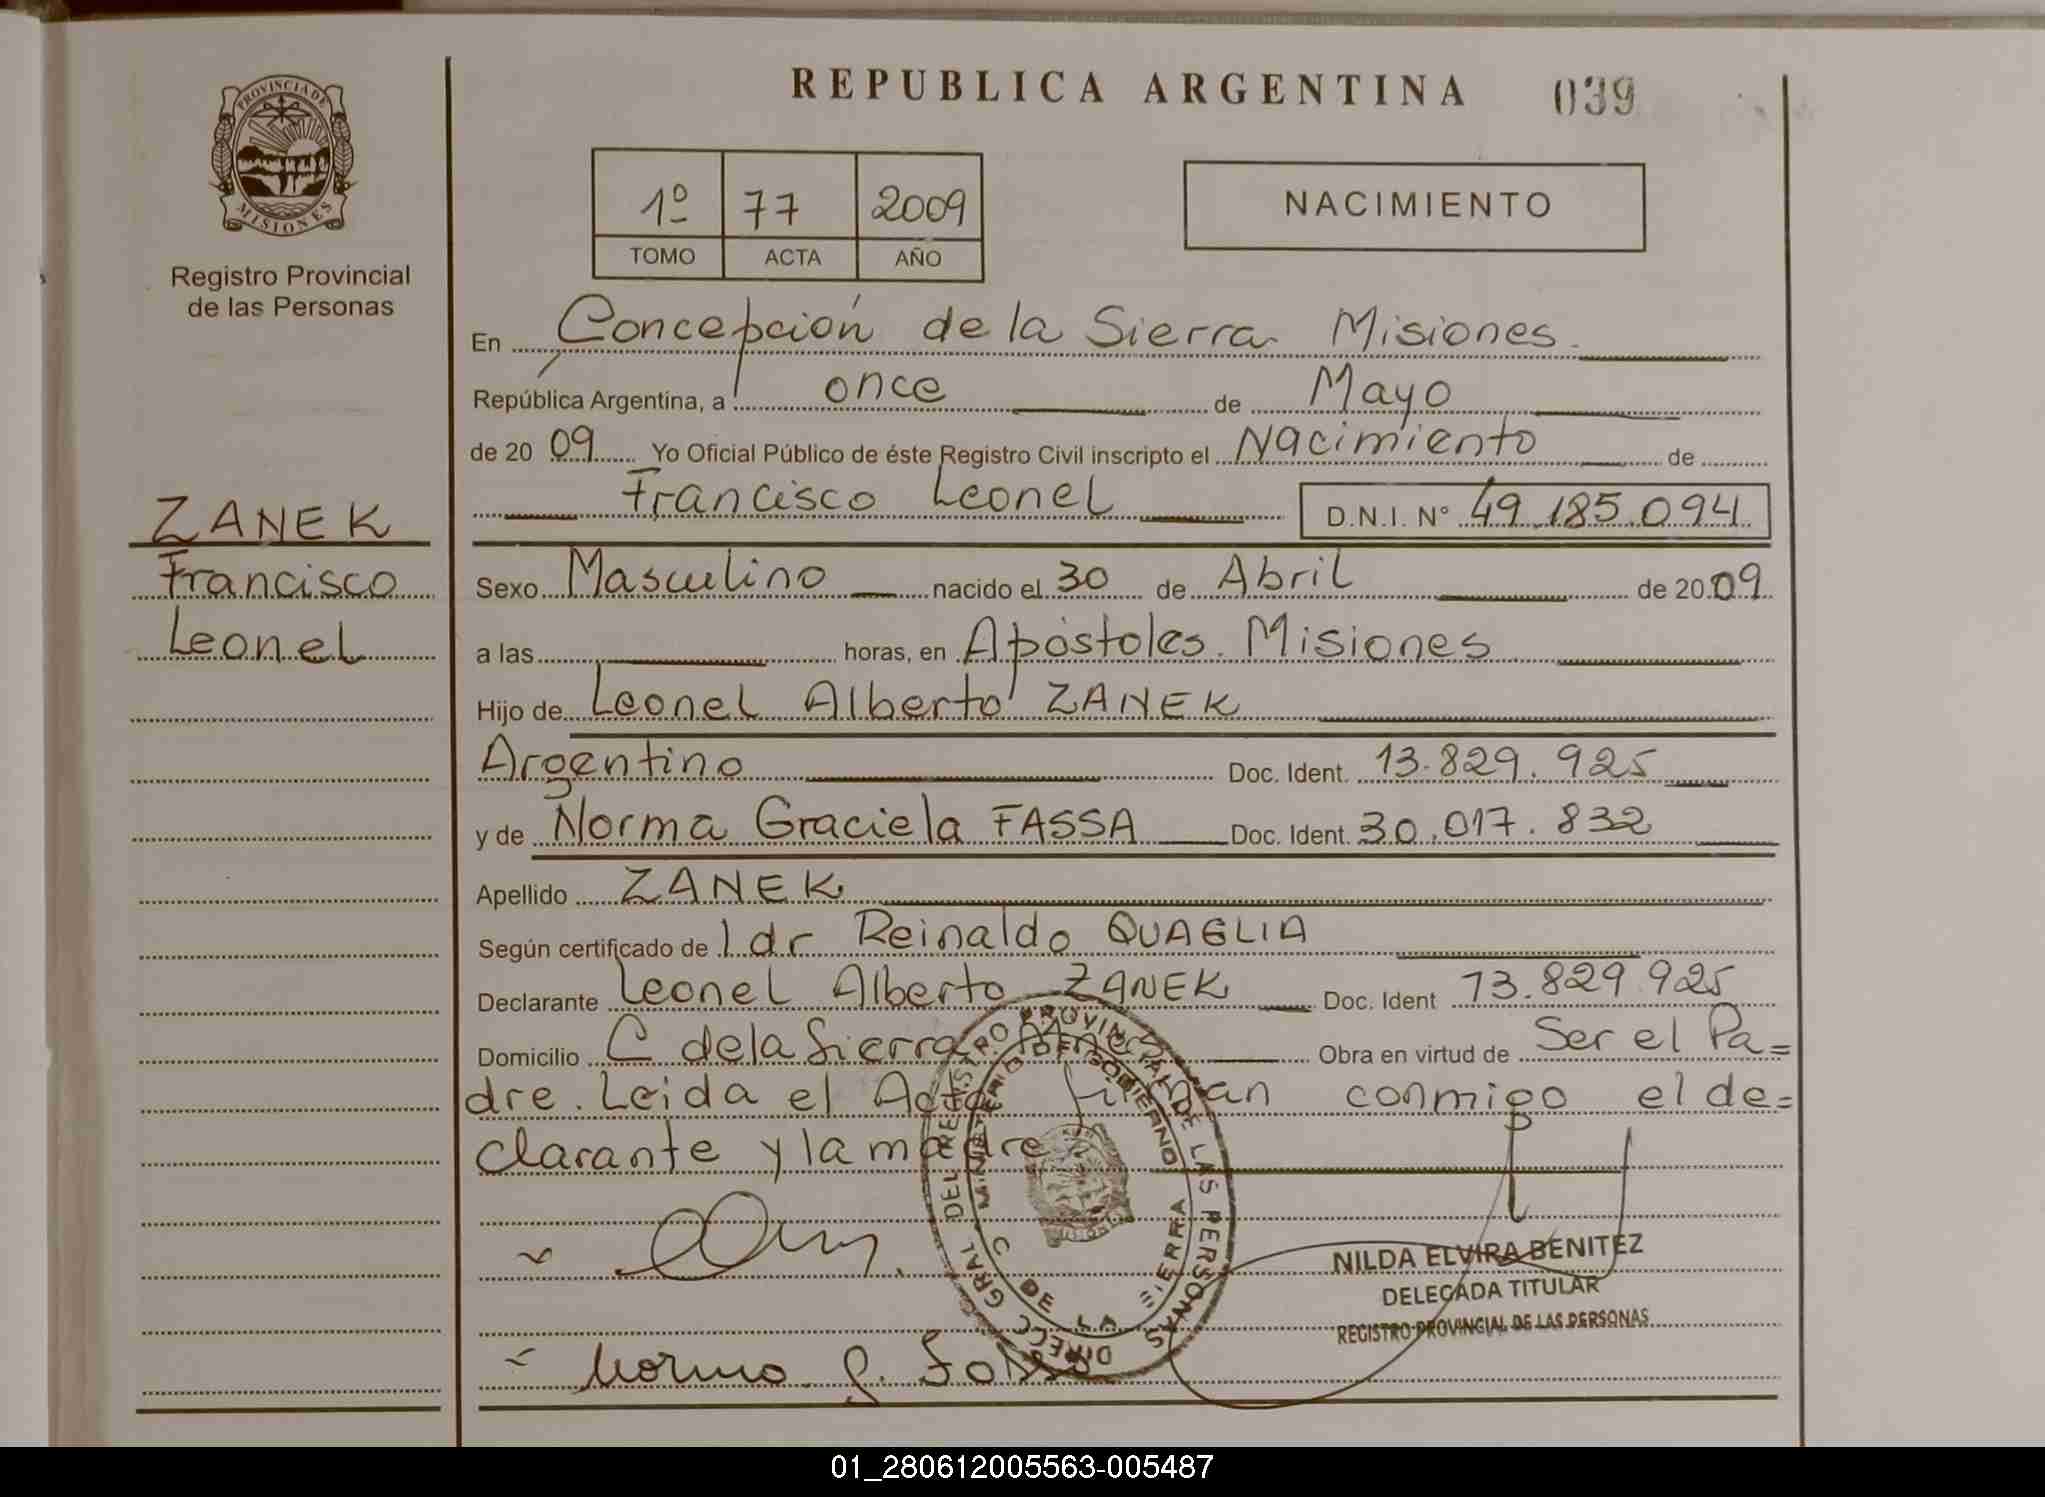 REPUBLICA ARGENTINA 039
PROVINCIA DE
MISIONES
Registro Provincial
de las Personas
1º 77 2009
TOMO ACTA AÑO
NACIMIENTO
En Concepción de la Sierra Misiones.
República Argentina, a once de Mayo
de 20 09 Yo Oficial Público de éste Registro Civil inscripto el Nacimiento de
Francisco Leonel D.N.I. N° 49.185.094
ZANEK
Francisco
Leonel
Sexo Masculino nacido el 30 de Abril de 20 09
a las horas, en Apóstoles. Misiones
Hijo de Leonel Alberto ZANEK
Argentino Doc. Ident. 13.829.925
y de Norma Graciela FASSA Doc. Ident. 30.017.832
Apellido ZANEK
Según certificado de 1 dr Reinaldo QUAGLIA
Declarante Leonel Alberto ZANEK Doc. Ident 13.829.925
Domicilio C de la Sierra Mnes Obra en virtud de Ser el Pa=
dre. Leida el Acta firman conmigo el de=
clarante y la madre
DIRECC GRAL DEL REGISTRO PROVINCIAL DE LAS PERSONAS
MINISTERIO DE GOBIERNO
C DE LA SIERRA
NILDA ELVIRA BENITEZ
DELEGADA TITULAR
REGISTRO PROVINCIAL DE LAS PERSONAS
Norma G. Fassa
01_280612005563-005487